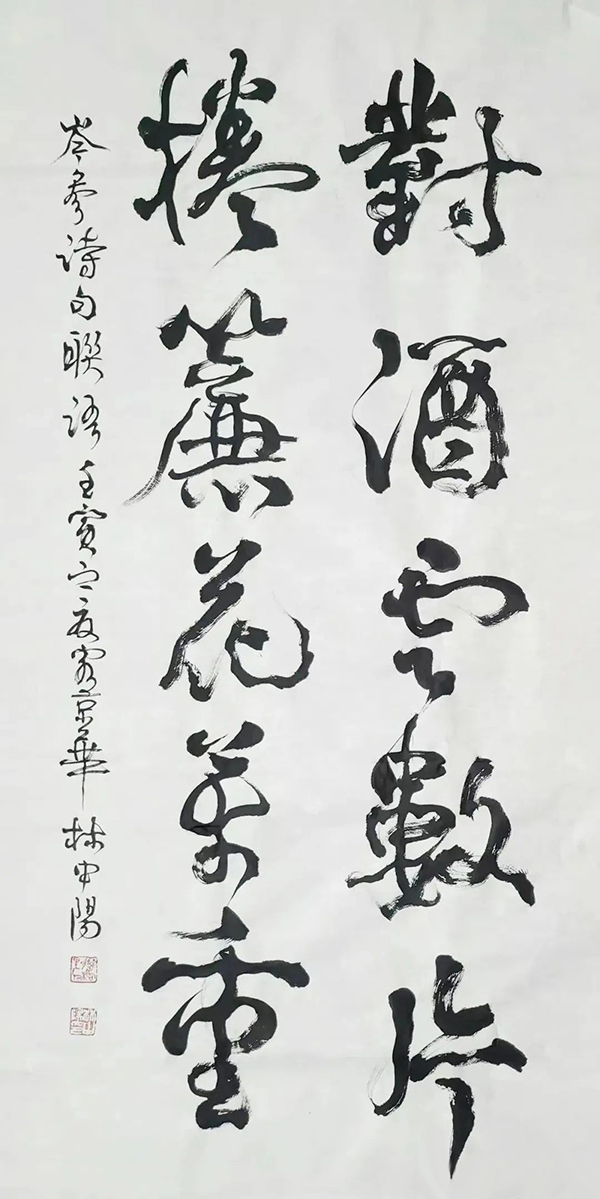 對酒雲數片
捲簾花萬重
岑參诗句联语壬寅之夏客京華 林中陽